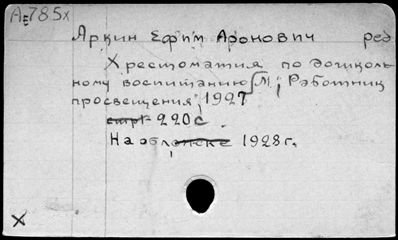 А-785х
Аркин Ефим Аронович ред.
Хрестоматия по дошколь-
ному воспитанию М; Работник
просвещения, 1927
220с.
На обложке 1928г.
х